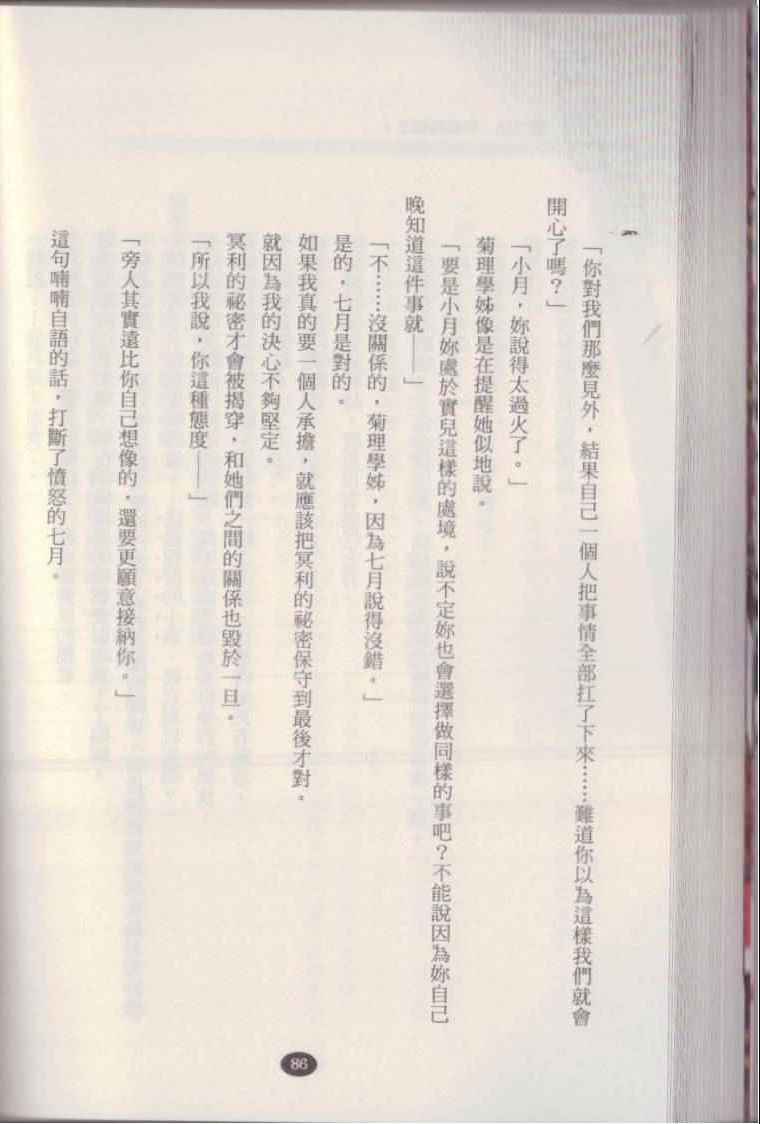 「你對我們那麼見外，結果自己一個人把事情全部扛了下來……難道你以為這樣我們就會
開心了嗎？」
「小月，妳說得太過火了。」
菊理學姊像是在提醒她似地說。
「要是小月妳處於實兒這樣的處境，說不定妳也會選擇做同樣的事吧？不能說因為妳自己
晚知道這件事就——」
「不……沒關係的，菊理學姊，因為七月說得沒錯。」
是的，七月是對的。
如果我真的要一個人承擔，就應該把冥利的祕密保守到最後才對。
就因為我的決心不夠堅定。
冥利的祕密才會被揭穿，和她們之間的關係也毀於一旦。
「所以我說，你這種態度——」
「旁人其實遠比你自己想像的，還要更願意接納你。」
這句喃喃自語的話，打斷了憤怒的七月。
86